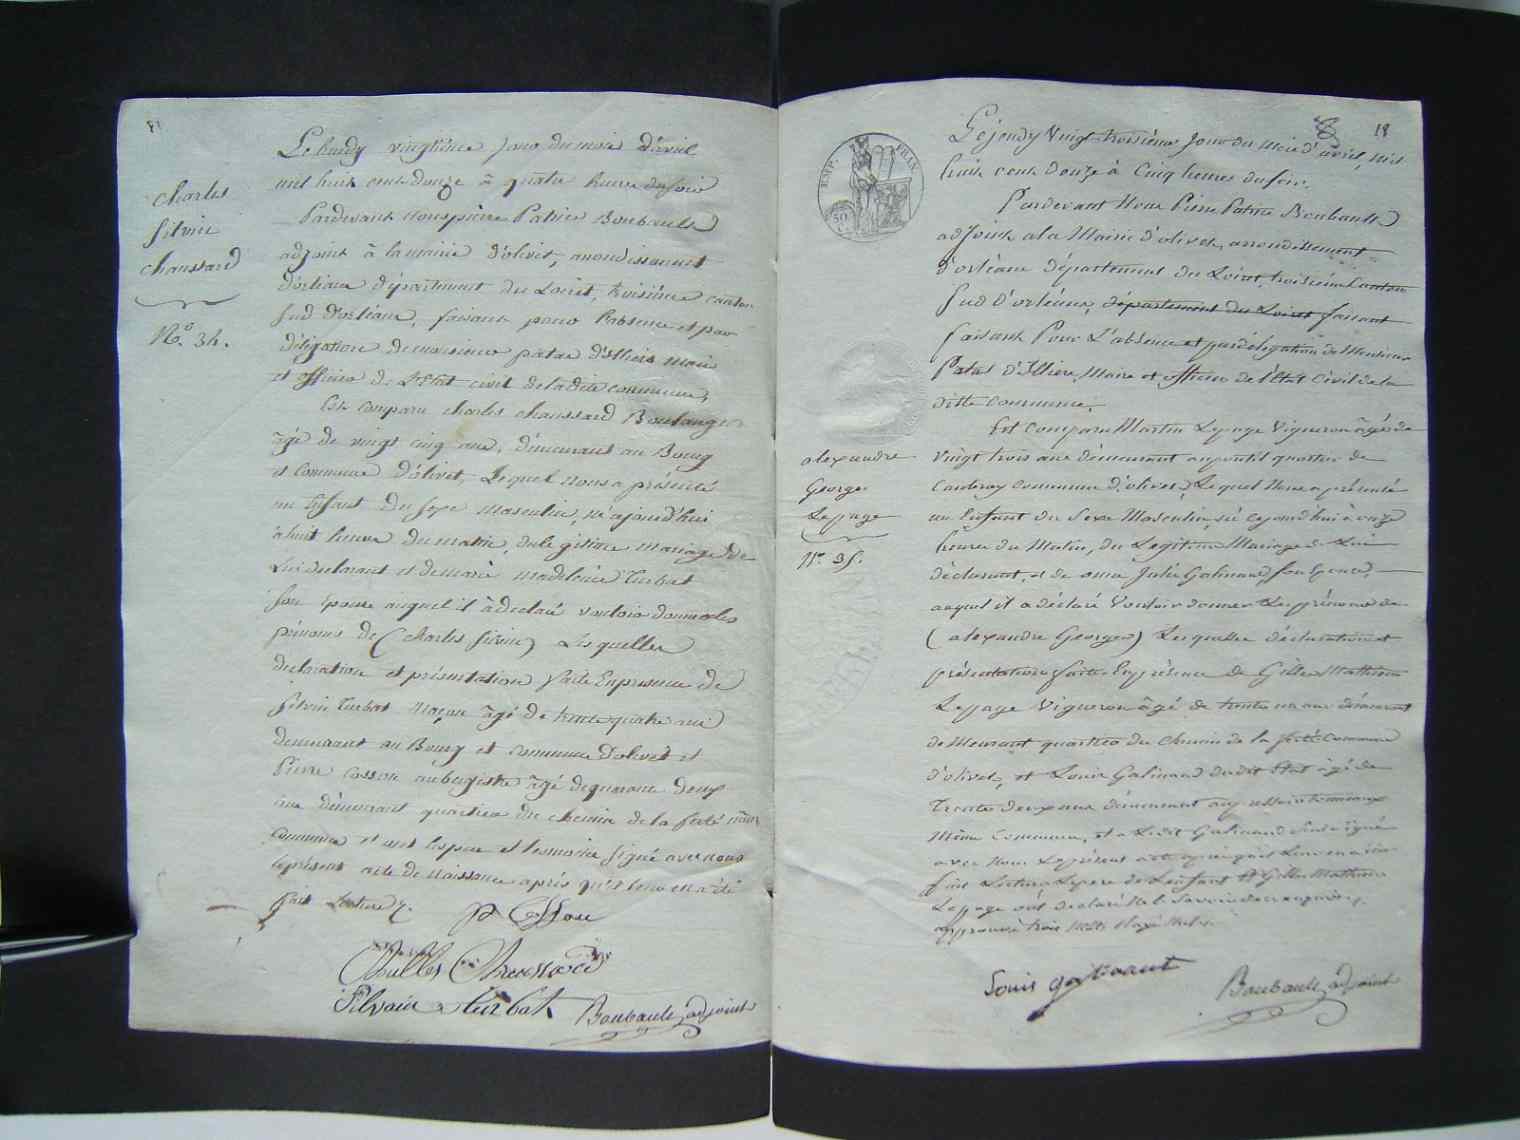 Charles
Silvin
chaussard
No. 34.
Le lundy vingtième jour du mois d'avril
mil huit cent douze à quatre heures du soir
Pardevant nous pierre Patrice Boubault
adjoint à la mairie d'olivet, arrondissement
d'orléans département du Loiret, troisième canton
sud d'orléans, faisant pour l'absence et par
délégation de monsieur patas d'illiers maire
et officier de l'état civil de ladite commune,
Est comparu charles chaussard Boulanger
âgé de vingt cinq ans, demeurant au Bourg
et commune d'olivet, Lequel nous a présenté
un Enfant du sexe masculin, né ajourd'hui
à huit heures du matin, du légitime mariage de
Lui déclarant et de marie madeleine Turbat
son épouse auquel il à déclaré vouloir donner les
prénoms de (Charles Silvin) Lesquelles
declaration et présentation faite En presence de
Silvin Turbat maçon âgé de trente quatre ans
demeurant au Bourg et commune d'olivet et
Pierre Cosson aubergiste âgé de quarante deux
ans demeurant quartier du chemin de la ferté même
commune et ont les pere et temoins signé avec nous
le présent acte de naissance après qu'il leur en a été
fait Lecture.
P Cosson
Charles Chaussard
Silvain Turbat Boubault, adjoint
18
EMP. FRAN.
50
C.
Le jeudy Vingt troisième Jour du Mois d'avril, mil
huit cent douze à Cinq heures du soir.
Pardevant Nous Pierre Patrice Boubault
adjoint a la Mairie d'olivet, arrondissement
d'orléans département du Loiret, troisième Canton
Sud d'orléans, département du Loiret faisant
faisant Pour L'absence et par délégation de Monsieur
Patas d'Illiers, Maire et officier de l'État Civil de la
ditte commune.
alexandre
George
Lepage
No. 35.
Est Comparu Martin Lepage Vigneron âgé de
Vingt trois ans demeurant au quartier de
Caubray commune d'olivet, Lequel Nous a présenté
un Enfant du Sexe Masculin, né cejourd'hui à onze
heures du Matin, du Légitime Mariage de Lui
déclarant, et de Julie Galinand son Epouse,
auquel il a déclaré Vouloir donner Les prénoms de
(alexandre George) Lesquelles déclaration et
présentation faites En présence de Gilles Mathurin
Lepage Vigneron âgé de trente un ans demeurant
demeurant quartier du Chemin de la ferté Commune
d'olivet, et Louis Galinand dudit Etat âgé de
Trente deux ans demeurant
Même Commune, et a Ledit Galinand Seul signé
avec Nous Le présent acte après qu'il Leur en a été
fait Lecture Le pere de L'enfant et Gilles Mathurin
Lepage ont déclaré Ne le Savoir
approuvé trois mots rayé Nuls.
Louis galinant Boubault, adjoint